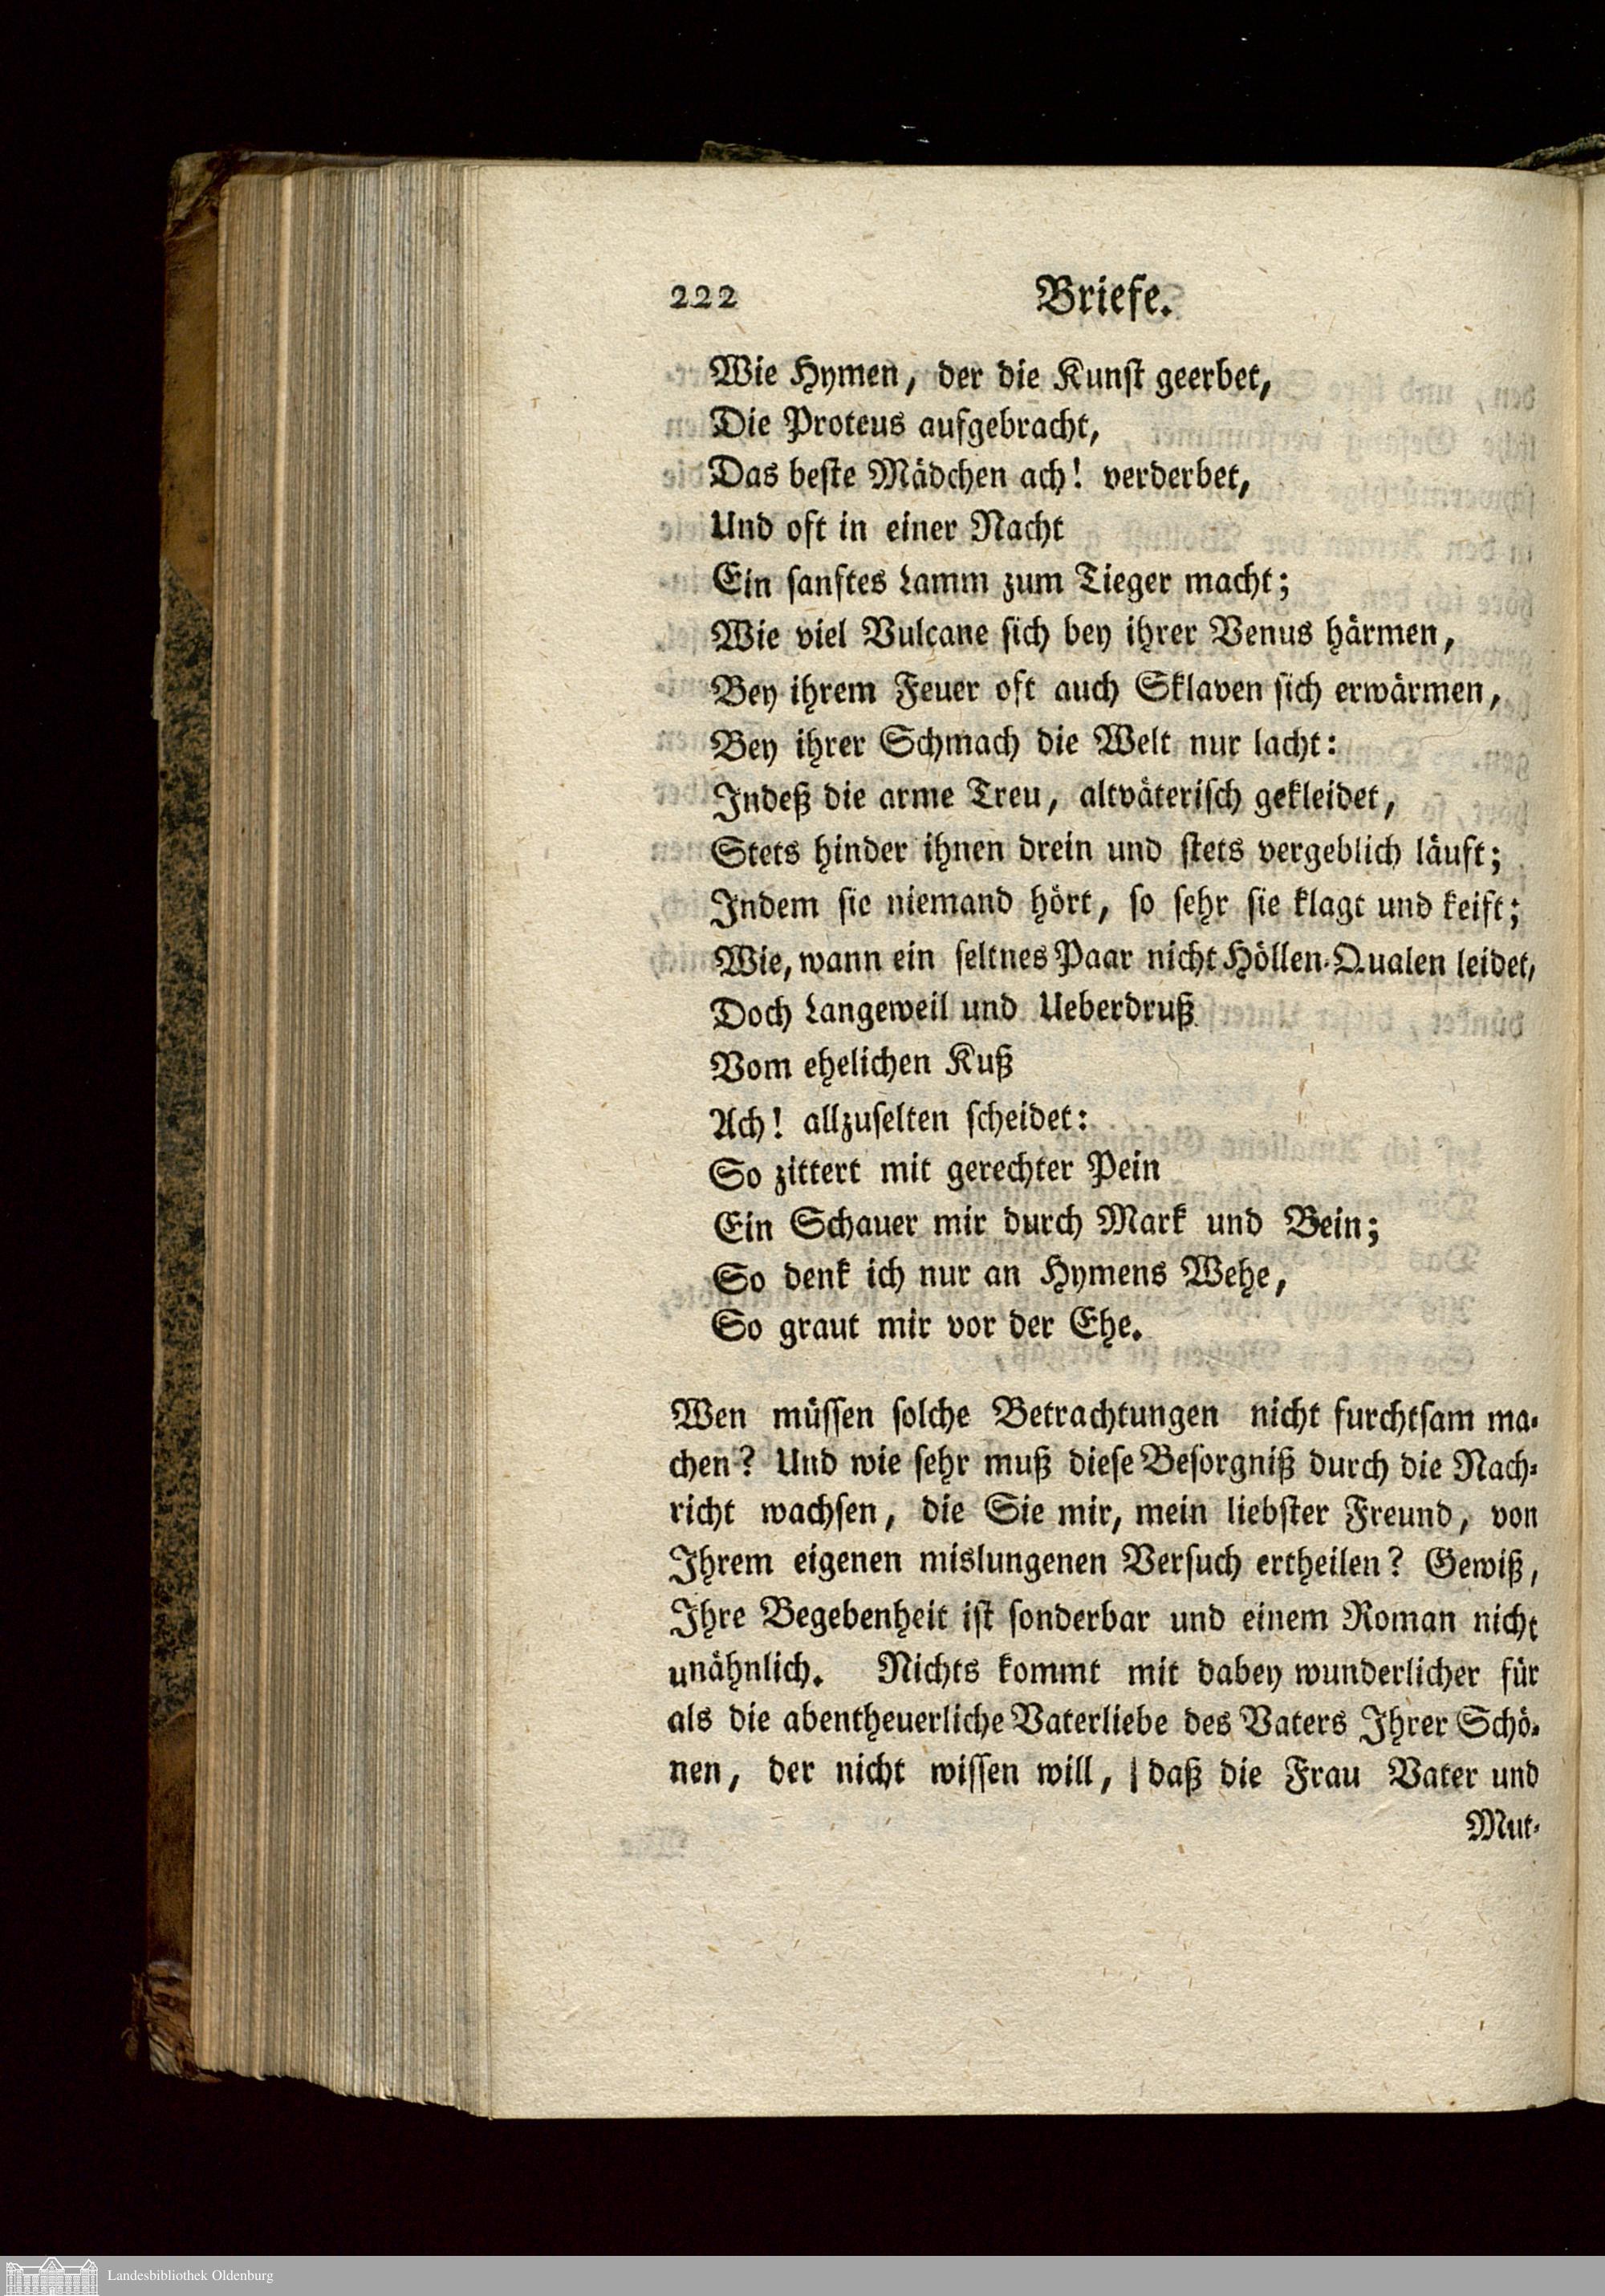 222 Briefe.
Wie Hymen, der die Kunst geerbet,
Die Proteus aufgebracht,
Das beste Mädchen ach! verderbet,
Und oft in einer Nacht
Ein sanftes Lamm zum Tieger macht;
Wie viel Vulcane sich bey ihrer Venus härmen,
Bey ihrem Feuer oft auch Sklaven sich erwärmen,
Bey ihrer Schmach die Welt nur lacht:
Indeß die arme Treu, altväterisch gekleidet,
Stets hinder ihnen drein und stets vergeblich läuft;
Indem sie niemand hört, so sehr sie klagt und keift;
Wie, wann ein seltnes Paar nicht Höllen-Qualen leidet,
Doch Langeweil und Ueberdruß
Vom ehelichen Kuß
Ach! allzuselten scheidet:
So zittert mit gerechter Pein
Ein Schauer mir durch Mark und Bein;
So denk ich nur an Hymens Wehe,
So graut mir vor der Ehe.
Wen müssen solche Betrachtungen nicht furchtsam ma-
chen? Und wie sehr muß diese Besorgniß durch die Nach-
richt wachsen, die Sie mir, mein liebster Freund, von
Ihrem eigenen mislungenen Versuch ertheilen? Gewiß,
Ihre Begebenheit ist sonderbar und einem Roman nicht
unähnlich. Nichts kommt mit dabey wunderlicher für
als die abentheuerliche Vaterliebe des Vaters Ihrer Schö-
nen, der nicht wissen will, daß die Frau Vater und
Mut-
Landesbibliothek Oldenburg